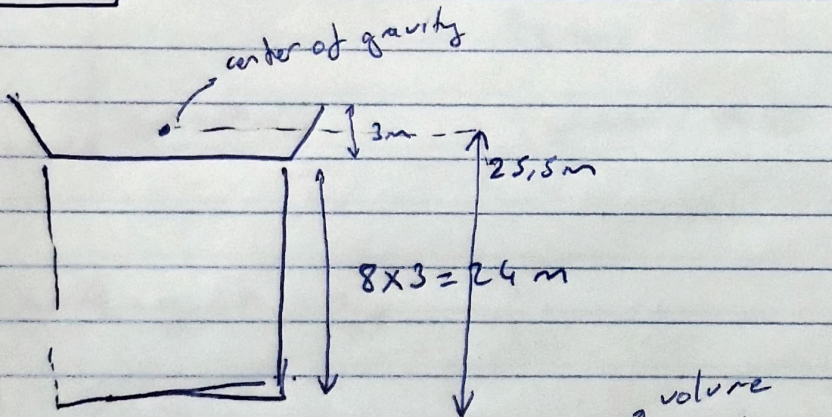 center of gravity
3m
25,5m
8x3 = 24 m
volume